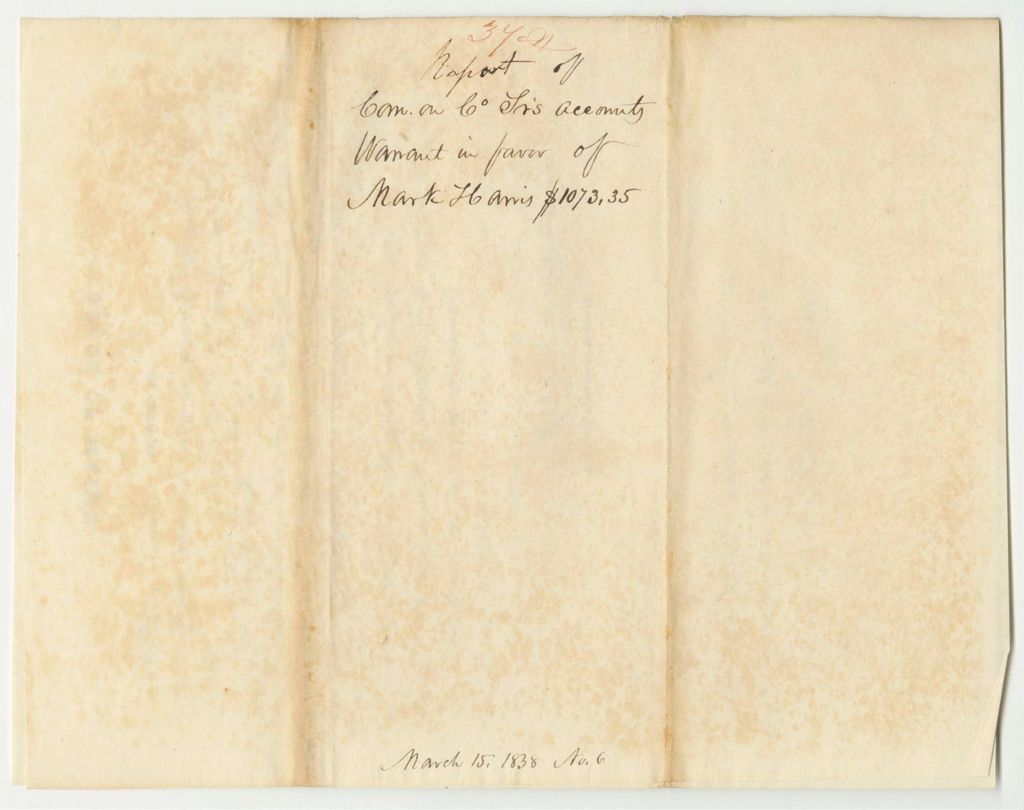 Report of
Com. on Co Trs accounts
Warrant in favor of
Mark Harris $1073,35
March 15, 1838 No. 6